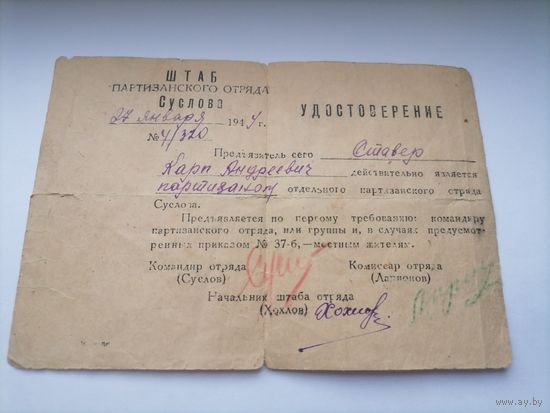 ШТАБ
ПАРТИЗАНСКОГО ОТРЯДА
Суслова
27 января 1944 г.
№ 4/320
УДОСТОВЕРЕНИЕ
Предъявитель сего Ставер
Карп Андреевич действительно является
партизаном отдельного партизанского отряда
Суслова.
Предъявляется по первому требованию: командиру
партизанского отряда, или группы и, в случаях предусмот-
ренных приказом № 37-б,—местным жителям.
Командир отряда
(Суслов)
Комиссар отряда
(Ларионов)
Начальник штаба отряда
(Хохлов) Хохлов
www.ay.by